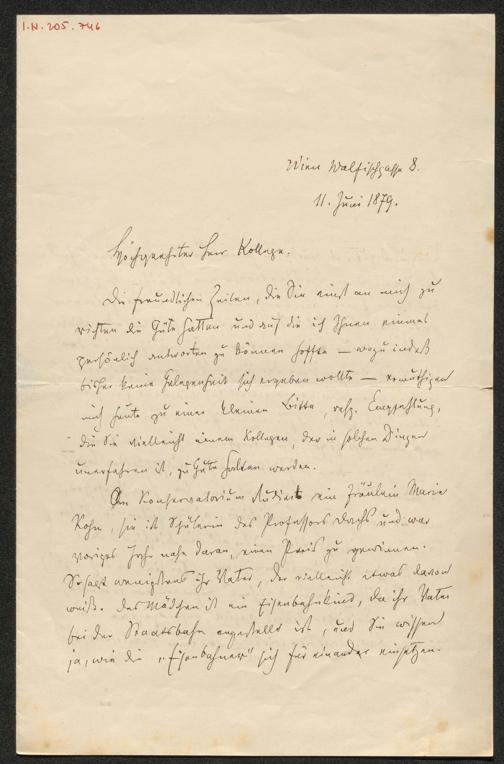 I.N. 205.746
Wien Walfischgasse 8.
11. Juni 1879.
Hochgeehrter Herr Kollege.
Die freundlichen Zeilen, die Sie einst an mich zu
richten die Güte hatten und auf die ich Ihnen einmal
persönlich antworten zu können hoffte — wozu indeß
bisher keine Gelegenheit sich ergeben wollte — ermuthigen
mich heute zu einer kleinen Bitte, resp. Empfehlung,
die Sie vielleicht einem Kollegen, der in solchen Dingen
unerfahren ist, zu Gute halten werden.
Am Konservatorium studiert ein Fräulein Marie
Kohn, sie ist Schülerin des Professors Dachs und war
voriges Jahr nahe daran, einen Preis zu gewinnen.
So sagt wenigstens ihr Vater, der vielleicht etwas davon
weiß. Das Mädchen ist ein Eisenbahnkind, da ihr Vater
bei der Staatsbahn angestellt ist, und Sie wissen
ja, wie die „Eisenbahner" sich für einander einsetzen.